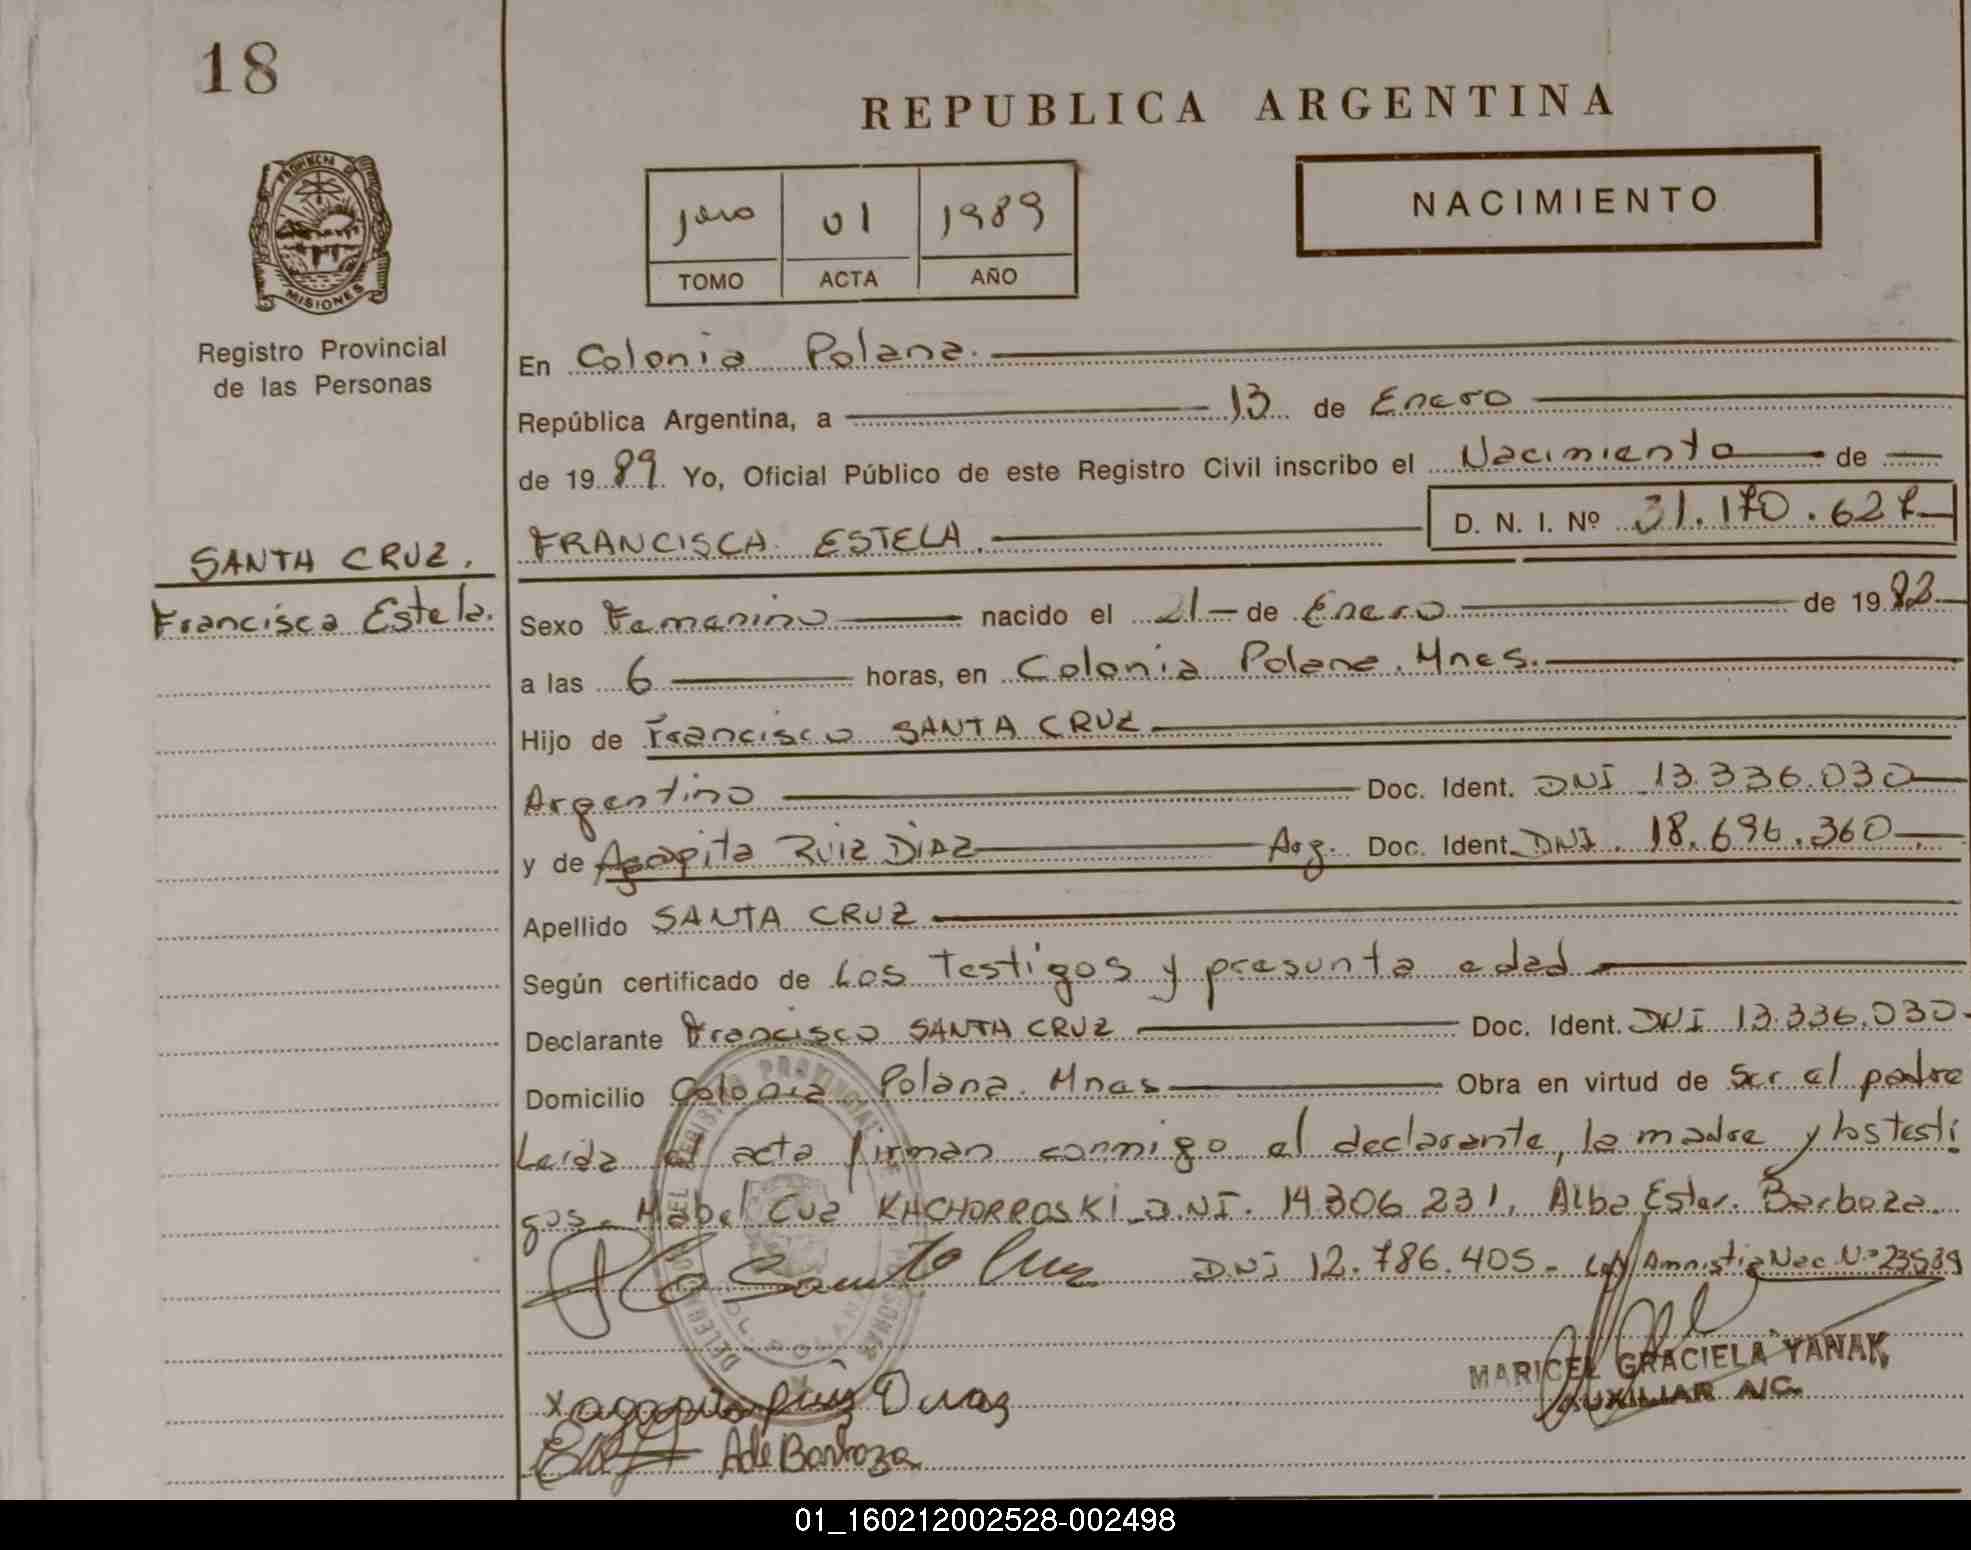 18
REPUBLICA ARGENTINA
PROVINCIA DE
MISIONES
Registro Provincial
de las Personas
1ero 01 1989
TOMO ACTA AÑO
NACIMIENTO
En Colonia Polana.
República Argentina, a 13 de Enero
de 1989 Yo, Oficial Público de este Registro Civil inscribo el Nacimiento de
FRANCISCA ESTELA. D. N. I. Nº 31.170.627
SANTA CRUZ.
Francisca Estela.
Sexo Femenino nacido el 21 de Enero de 19
a las 6 horas, en Colonia Polana. Mnes.
Hijo de Francisco SANTA CRUZ
Argentino Doc. Ident. DNI 13.336.030
y de Agapita RUIZ DIAZ Arg. Doc. Ident. DNI. 18.696.360
Apellido SANTA CRUZ
Según certificado de Los Testigos y presunta edad
Declarante Francisco SANTA CRUZ Doc. Ident. DNI 13.336.030
Domicilio Colonia Polana. Mnes Obra en virtud de Ser el padre
Leida el acta firman conmigo el declarante, la madre y los testi
gos. Mabel Cuz KACHORROSKI D.NI. 14.306.231, Alba Ester. Barboza.
DNI 12.786.405 - Ley Amnistia Nac. Nº 23539
Santa Cruz
MARICEL GRACIELA YANAK
AUXILIAR A/C.
x agapita ruiz Diaz
A de Barboza
01_160212002528-002498